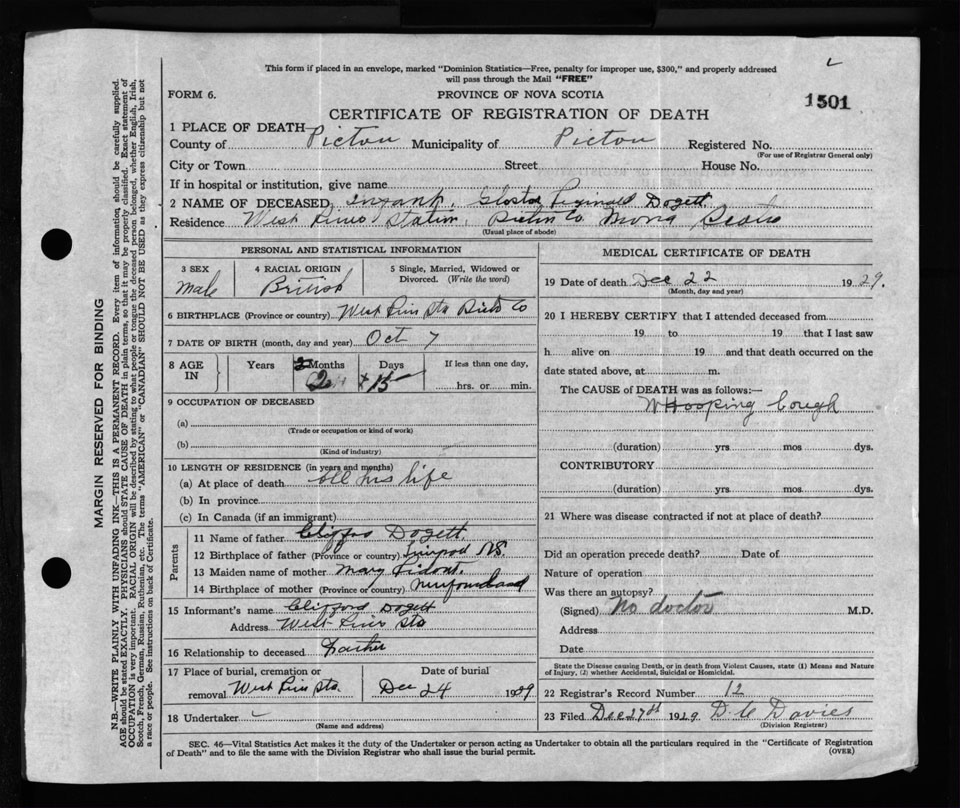 This form if placed in an envelope, marked "Dominion Statistics—Free, penalty for improper use, $300," and properly addressed
will pass through the Mail "FREE"
FORM 6. PROVINCE OF NOVA SCOTIA
1501
CERTIFICATE OF REGISTRATION OF DEATH
1 PLACE OF DEATH
County of Pictou Municipality of Pictou Registered No.
(For use of Registrar General only)
City or Town Street House No.
If in hospital or institution, give name
2 NAME OF DECEASED, Infant Dogett
Residence West Station, Pictou Co Nova Scotia
(Usual place of abode)
PERSONAL AND STATISTICAL INFORMATION
3 SEX Male
4 RACIAL ORIGIN British
5 Single, Married, Widowed or
Divorced. (Write the word)
6 BIRTHPLACE (Province or country) West Sta Co
7 DATE OF BIRTH (month, day and year) Oct 7
8 AGE IN Years Months 2 Days 15 If less than one day,
hrs. or min.
9 OCCUPATION OF DECEASED
(a)
(Trade or occupation or kind of work)
(b)
(Kind of industry)
10 LENGTH OF RESIDENCE (in years and months)
(a) At place of death all his life
(b) In province
(c) In Canada (if an immigrant)
Parents
11 Name of father Dogett
12 Birthplace of father (Province or country) NS.
13 Maiden name of mother Mary
14 Birthplace of mother (Province or country) Newfoundland
15 Informant's name Clifford Dogett
Address West Sta
16 Relationship to deceased Father
17 Place of burial, cremation or
removal West Sta.
Date of burial
Dec 24 1929
18 Undertaker
(Name and address)
MEDICAL CERTIFICATE OF DEATH
19 Date of death Dec 22 1929.
(Month, day and year)
20 I HEREBY CERTIFY that I attended deceased from
19 to 19 that I last saw
h alive on 19 and that death occurred on the
date stated above, at m.
The CAUSE of DEATH was as follows:—
Whooping Cough
(duration) yrs mos dys.
CONTRIBUTORY
(duration) yrs mos dys.
21 Where was disease contracted if not at place of death?
Did an operation precede death? Date of
Nature of operation
Was there an autopsy?
(Signed) No doctor M.D.
Address
Date
State the Disease causing Death, or in death from Violent Causes, state (1) Means and Nature
of Injury, (2) whether Accidental, Suicidal or Homicidal.
22 Registrar's Record Number 12
23 Filed Dec 27 1929 Davies
(Division Registrar)
SEC. 46—Vital Statistics Act makes it the duty of the Undertaker or person acting as Undertaker to obtain all the particulars required in the "Certificate of Registration
of Death" and to file the same with the Division Registrar who shall issue the burial permit. (OVER)
MARGIN RESERVED FOR BINDING
N.B.—WRITE PLAINLY WITH UNFADING INK—THIS IS A PERMANENT RECORD. Every item of information should be carefully supplied.
AGE should be stated EXACTLY. PHYSICIANS should STATE CAUSE OF DEATH in plain terms, so that it may be properly classified. Exact statement of
OCCUPATION is very important. RACIAL ORIGIN will be described by stating to what people or tongue the deceased person belonged, whether English, Irish,
Scotch, French, German, Russian, Ruthenian, etc. The terms "AMERICAN" or "CANADIAN" SHOULD NOT BE USED as they express citizenship but not
a race or people. See instructions on back of Certificate.